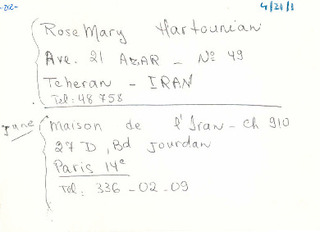 4/21/1
RoseMary Hartounian
Ave. 21 AZAR - Nº 49
Teheran - IRAN
Tel: 48 758
June
Maison de l'Iran - ch 910
27 D, Bd Jourdan
Paris 14e
Tel: 336-02-09